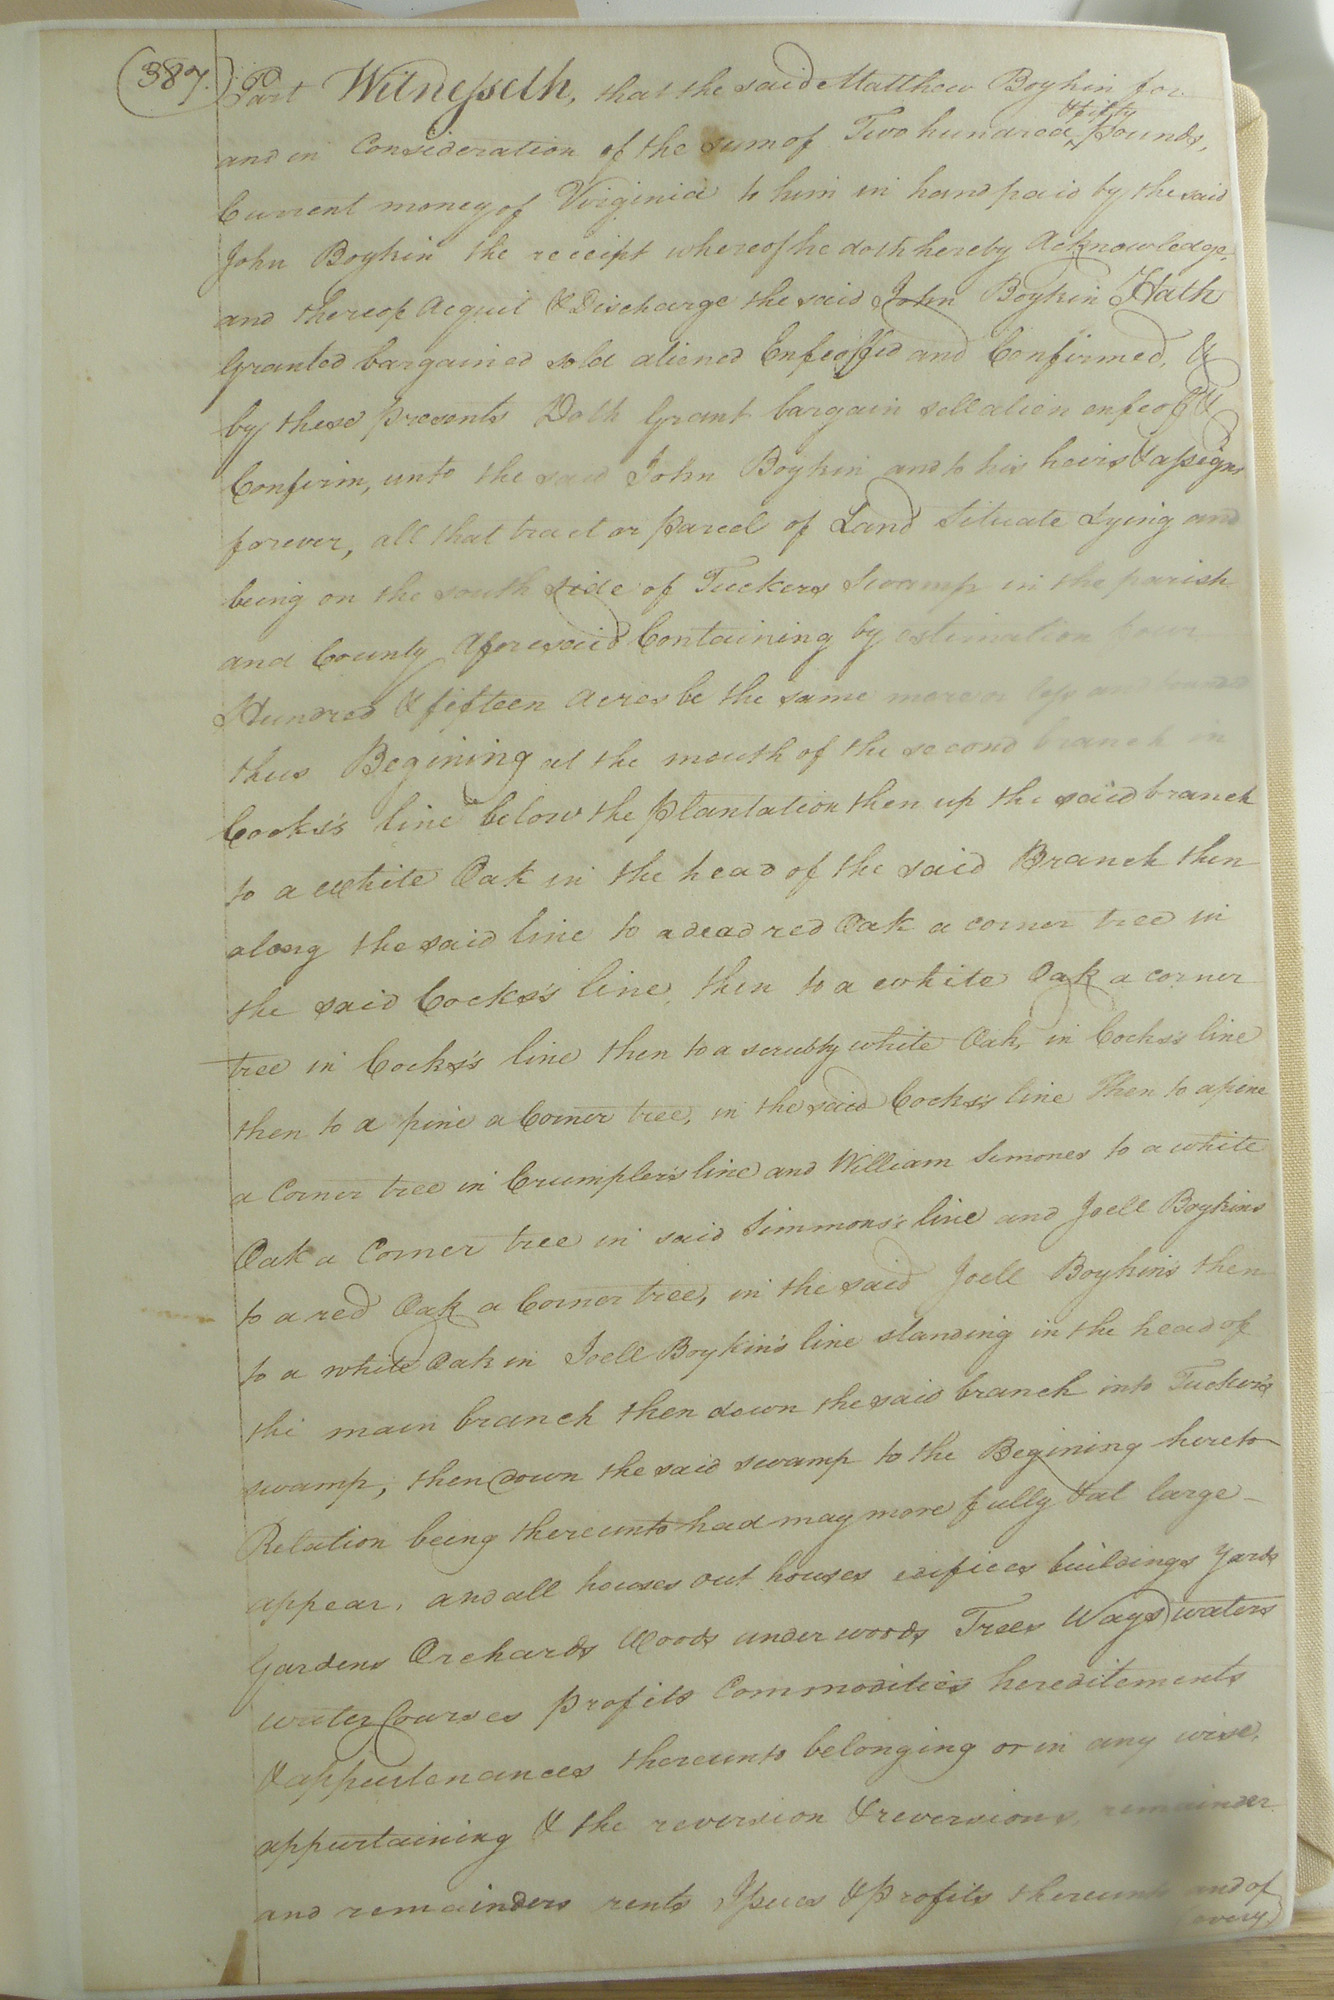 (387.)
Part Witnesseth, that the said Matthew Boykin for
and in Consideration of the sum of Two hundred & fifty pounds,
Current money of Virginia to him in hand paid by the said
John Boykin the receipt whereof he doth hereby Acknowledge,
and thereof Acquit & Discharge the said John Boykin Hath
Granted bargained sold aliened Enfeoffed and Confirmed, &
by these presents Doth Grant bargain sell alien enfeoff &
Confirm, unto the said John Boykin and to his heirs & assigns
forever, all that tract or parcel of Land Situate Lying and
being on the south side of Tuckers Swamp in the parish
and County Aforesaid Containing by estimation four
Hundred & fifteen Acres be the same more or less and bounded
thus Begining at the mouth of the second branch in
Cocks's line below the plantation then up the said branch
to a white Oak in the head of the said Branch then
along the said line to a dead red Oak a corner tree in
the said Cocks's line, then to a white Oak a corner
tree in Cocks's line then to a scrubby white Oak, in Cocks's line
then to a pine a Corner tree, in the said Cocks's line Then to a pine
a Corner tree in Crumpler's line and William Simones to a white
Oak a Corner tree in said Simmons's line and Joell Boykins
to a red Oak a Corner tree, in the said Joell Boykin's then
to a white Oak in Joell Boykin's line standing in the head of
the main branch then down the said branch into Tucker's
swamp, then down the said swamp to the Begining hereto
Relation being thereunto had may more fully & at large
appear, and all houses out houses edifices buildings Yards
Gardens Orchards Woods under woods Trees Ways waters
water Courses profits Commodities hereditements
& appurtenances thereunto belonging or in any wise,
appurtaining & the reversion & reversions, remainder
and remainders rents Issues & profits thereunto and of
every